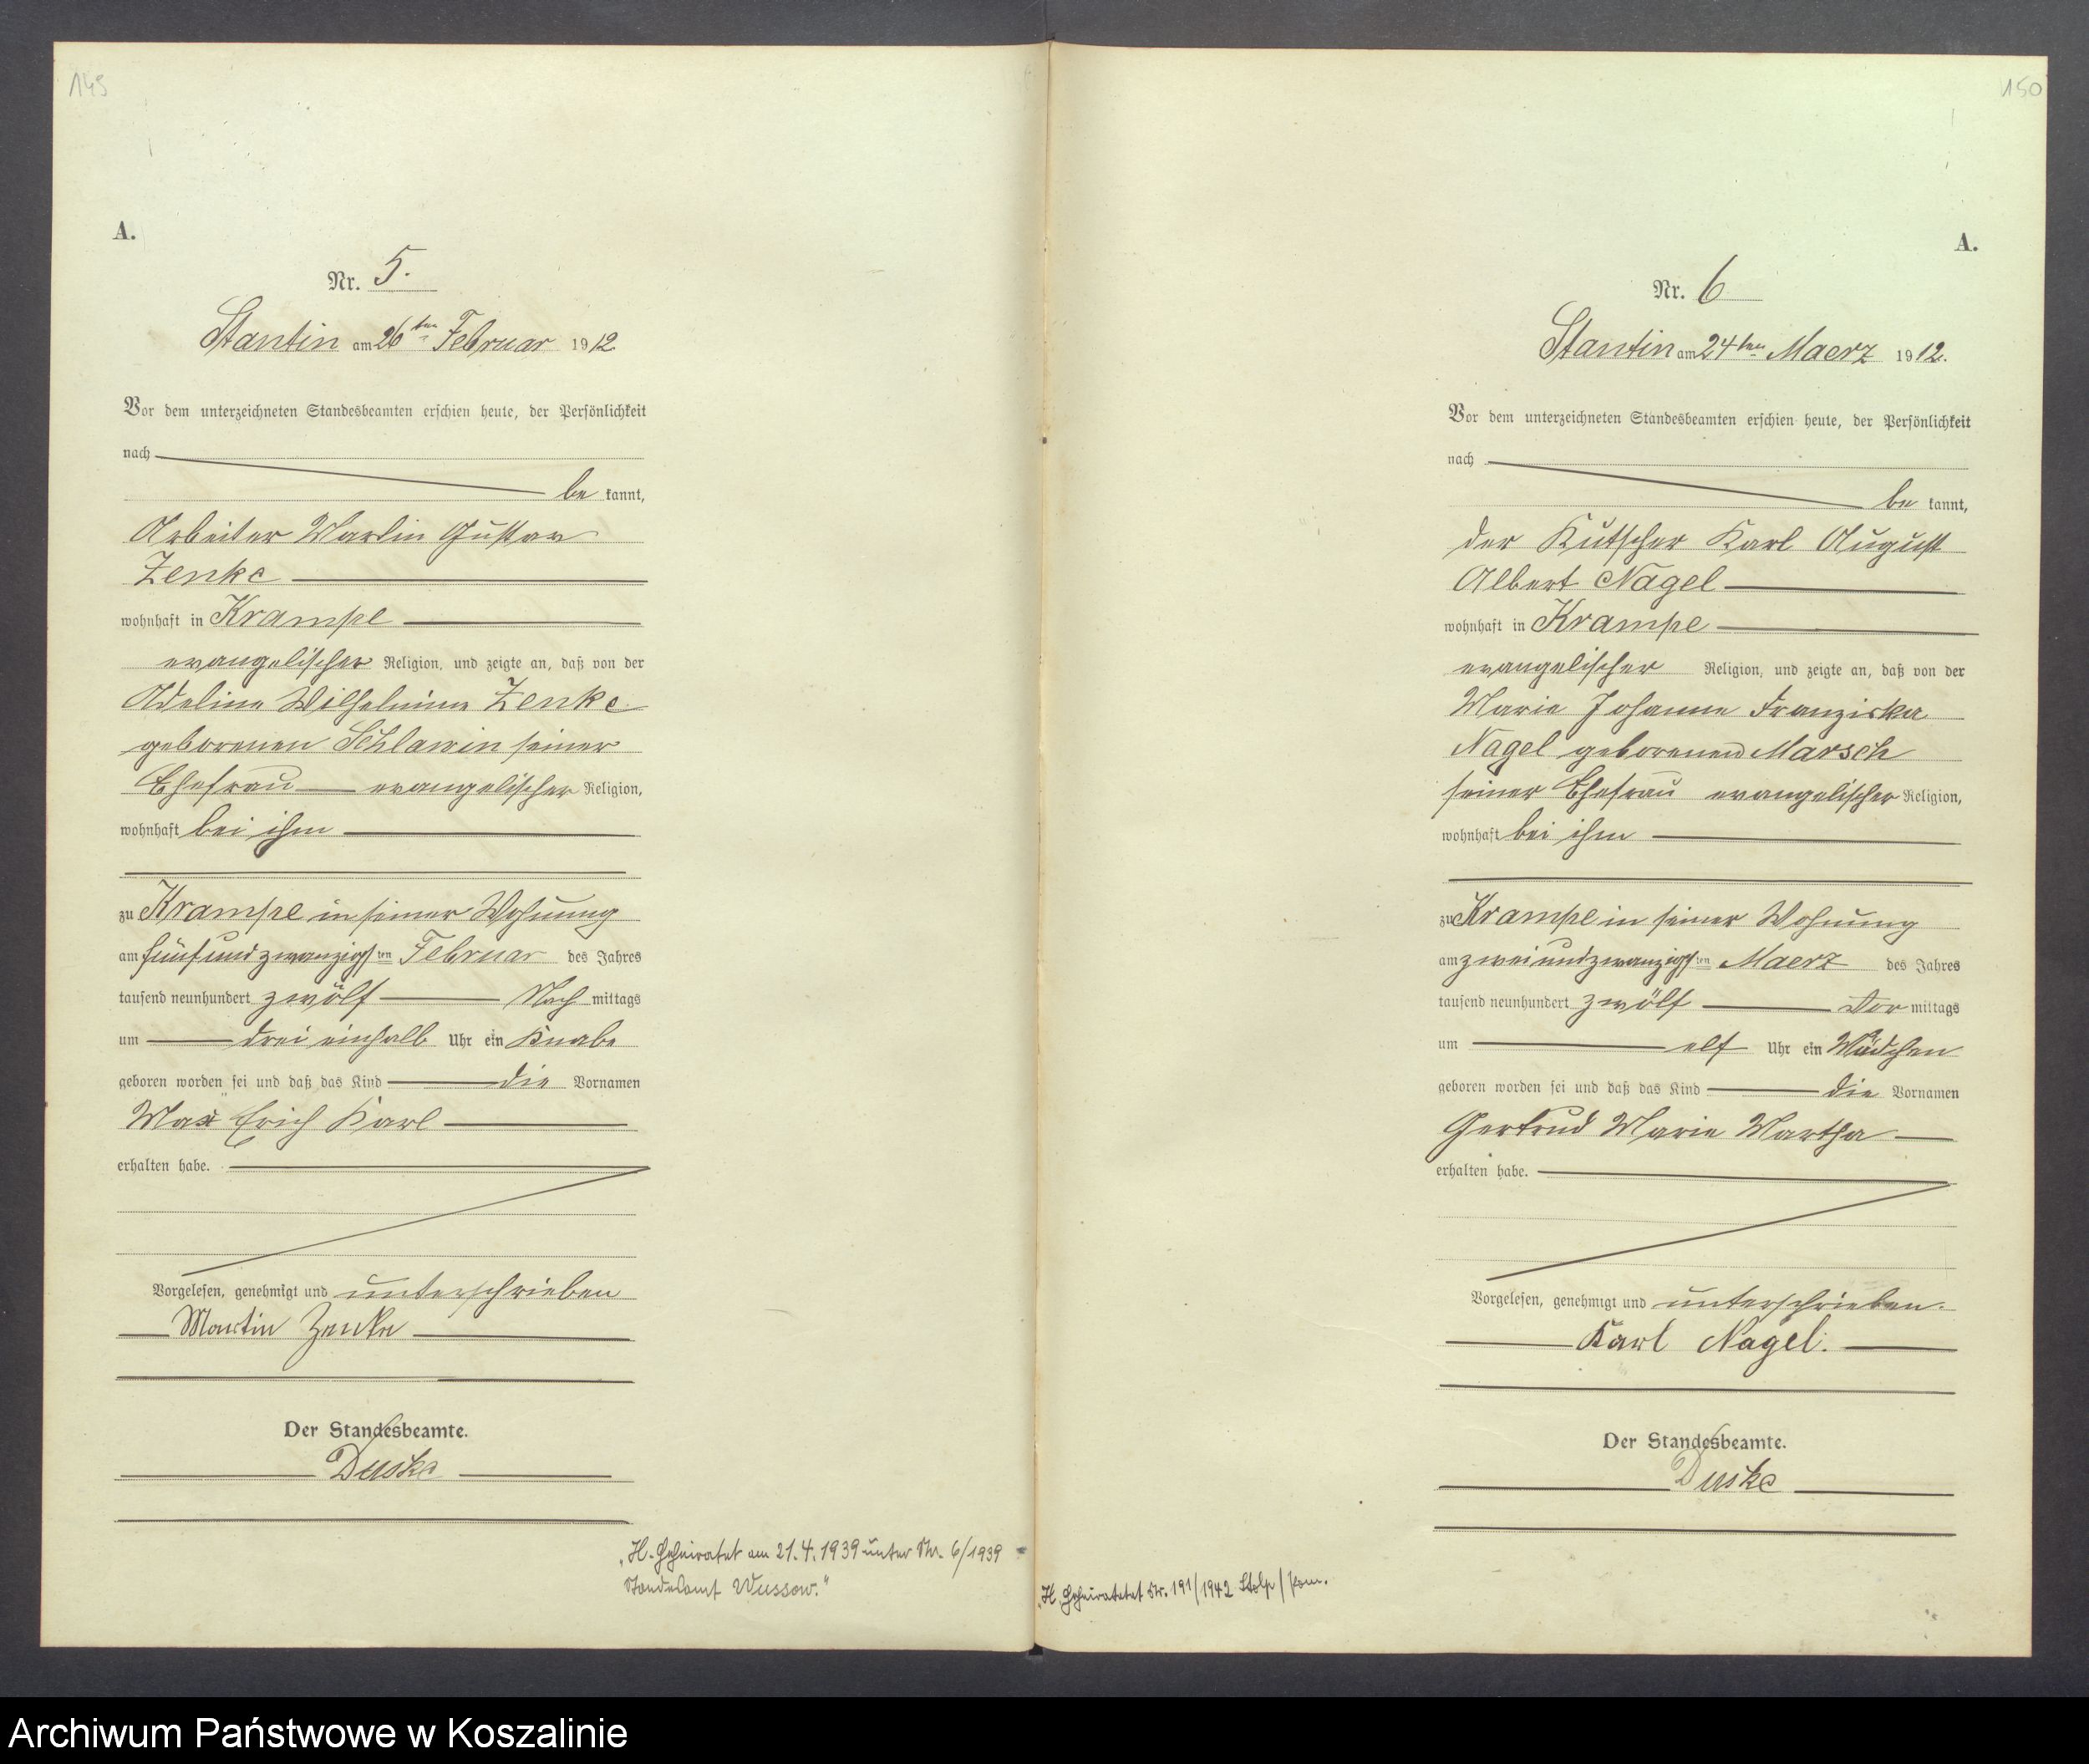 149
A.
Nr. 5.
Stantin am 26ten Februar 1912
Vor dem unterzeichneten Standesbeamten erschien heute, der Persönlichkeit
nach
be kannt,
Arbeiter Martin Gustav
Zenke
wohnhaft in Krampe
evangelischer Religion, und zeigte an, daß von der
Adeline Wilhelmine Zenke
geborenen Schlawin seiner
Ehefrau evangelischer Religion,
wohnhaft bei ihm
zu Krampe in seiner Wohnung
am fünfundzwanzigsten Februar des Jahres
tausend neunhundert zwölf Nach mittags
um drei einhalb Uhr ein Knabe
geboren worden sei und daß das Kind die Vornamen
Max Erich Karl
erhalten habe.
Vorgelesen, genehmigt und unterschrieben
Martin Zenke
Der Standesbeamte.
Duske
"H. Geheiratet am 21.4.1939 unter Nr. 6/1939
Standesamt Wussow."
150
A.
Nr. 6
Stantin am 24ten Maerz 1912.
Vor dem unterzeichneten Standesbeamten erschien heute, der Persönlichkeit
nach
be kannt,
der Kutscher Karl August
Albert Nagel
wohnhaft in Krampe
evangelischer Religion, und zeigte an, daß von der
Marie Johanne Franziska
Nagel geborenen Marsch
seiner Ehefrau evangelischer Religion,
wohnhaft bei ihm
zu Krampe in seiner Wohnung
am zweiundzwanzigsten Maerz des Jahres
tausend neunhundert zwölf Vor mittags
um elf Uhr ein Mädchen
geboren worden sei und daß das Kind die Vornamen
Gertrud Marie Martha
erhalten habe.
Vorgelesen, genehmigt und unterschrieben.
Karl Nagel.
Der Standesbeamte.
Duske
"H. Geheiratet Nr. 191/1942 Stolp/Pom.
Archiwum Państwowe w Koszalinie